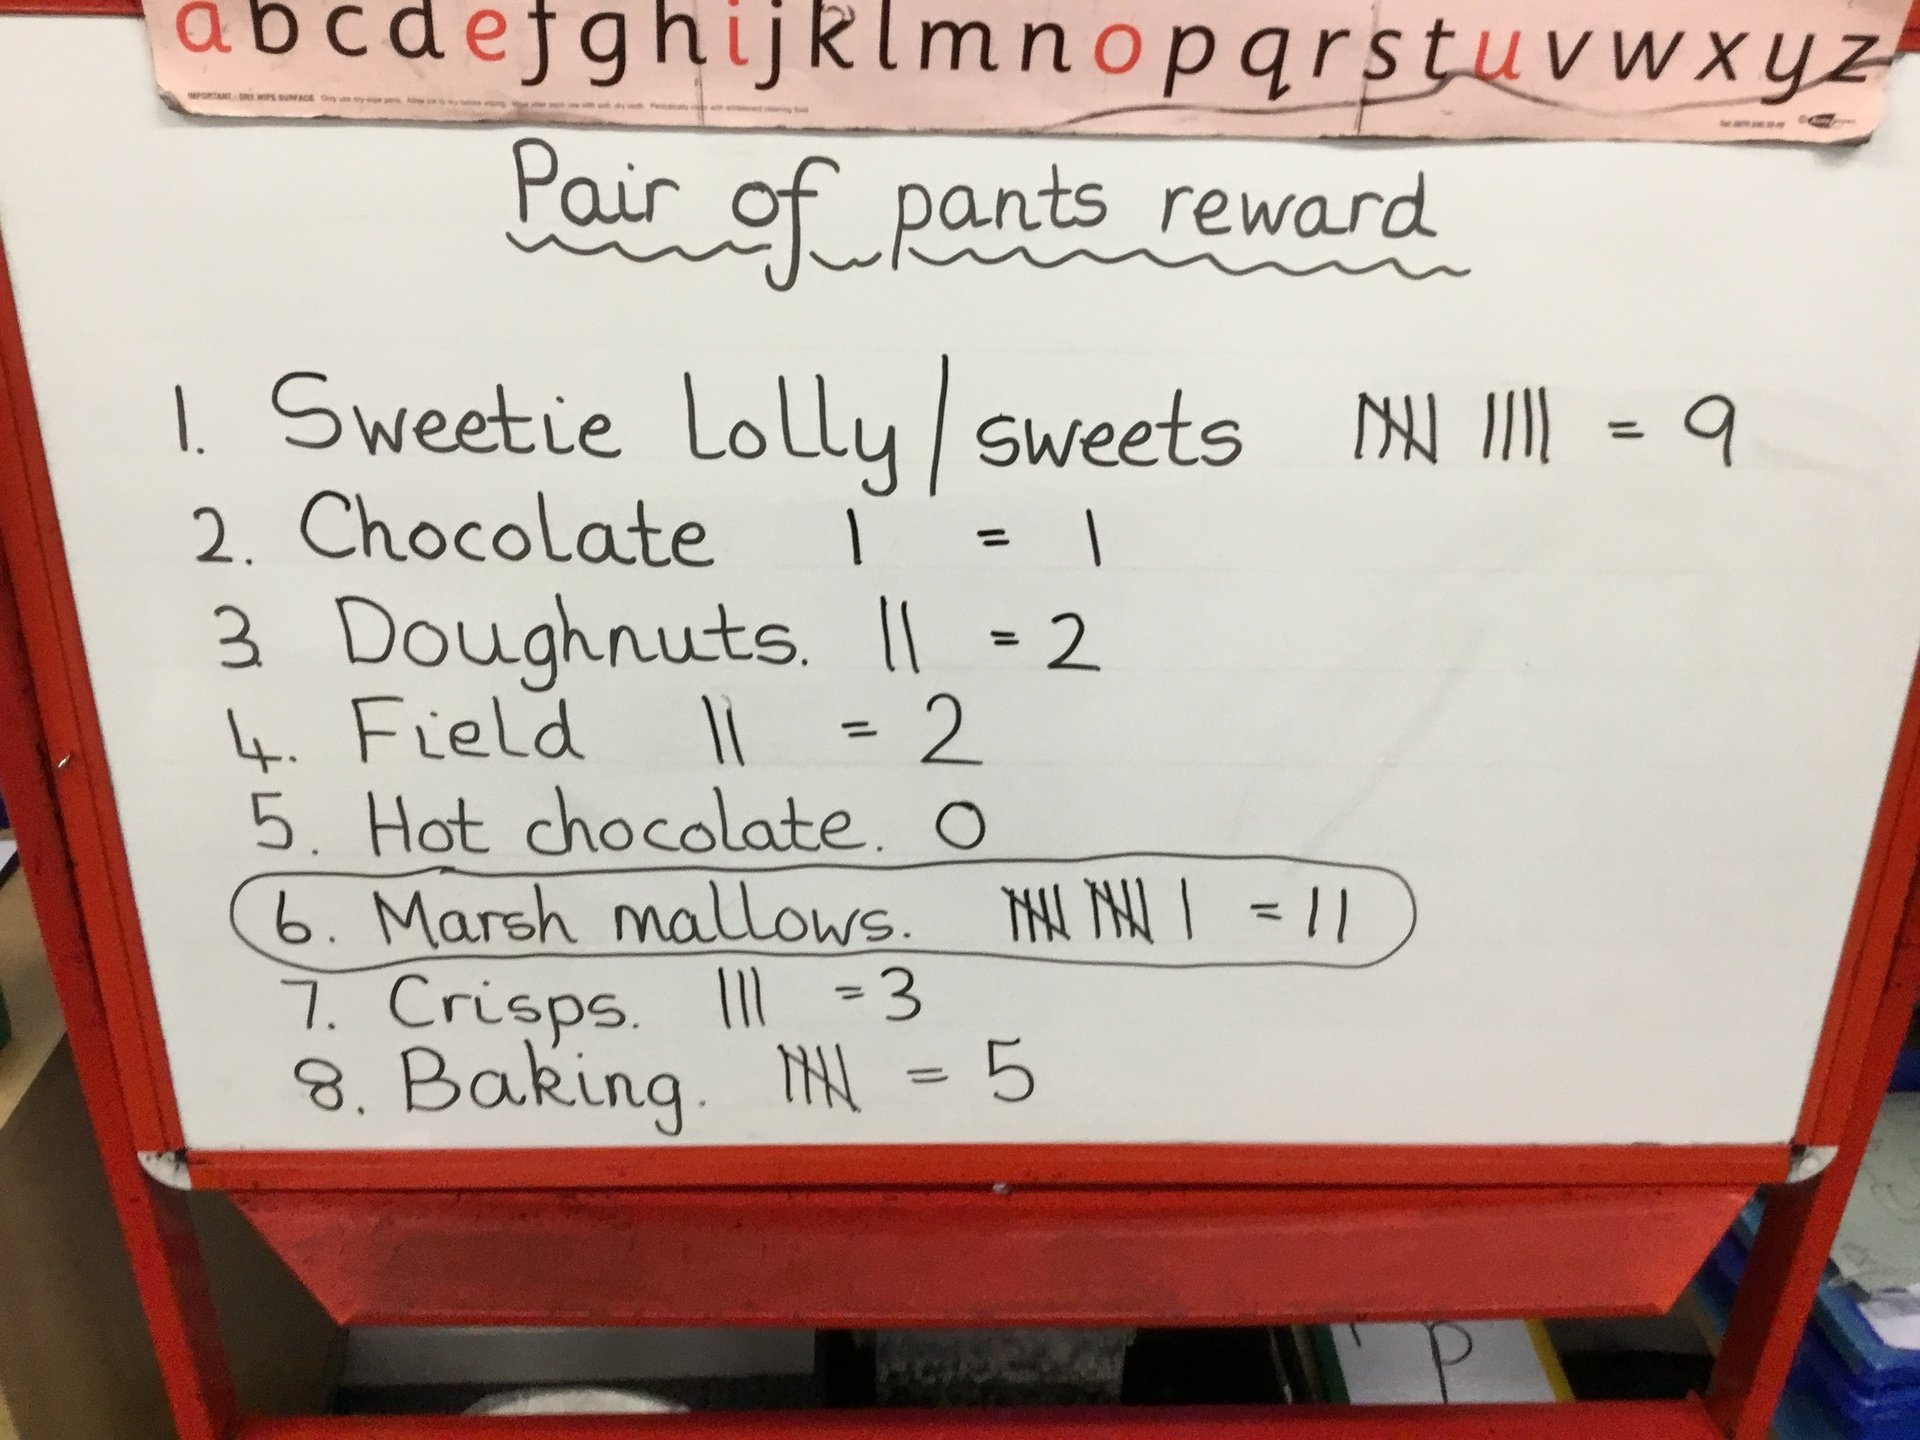 a b c d e f g h i j k l m n o p q r s t u v w x y z
IMPORTANT - DRY WIPE SURFACE
Pair of pants reward
1. Sweetie Lolly / sweets 𝍸 |||| = 9
2. Chocolate | = 1
3 Doughnuts. || = 2
4. Field || = 2
5. Hot chocolate. 0
6. Marsh mallows. 𝍸 𝍸 | = 11
7. Crisps. ||| = 3
8. Baking. 𝍸 = 5
p